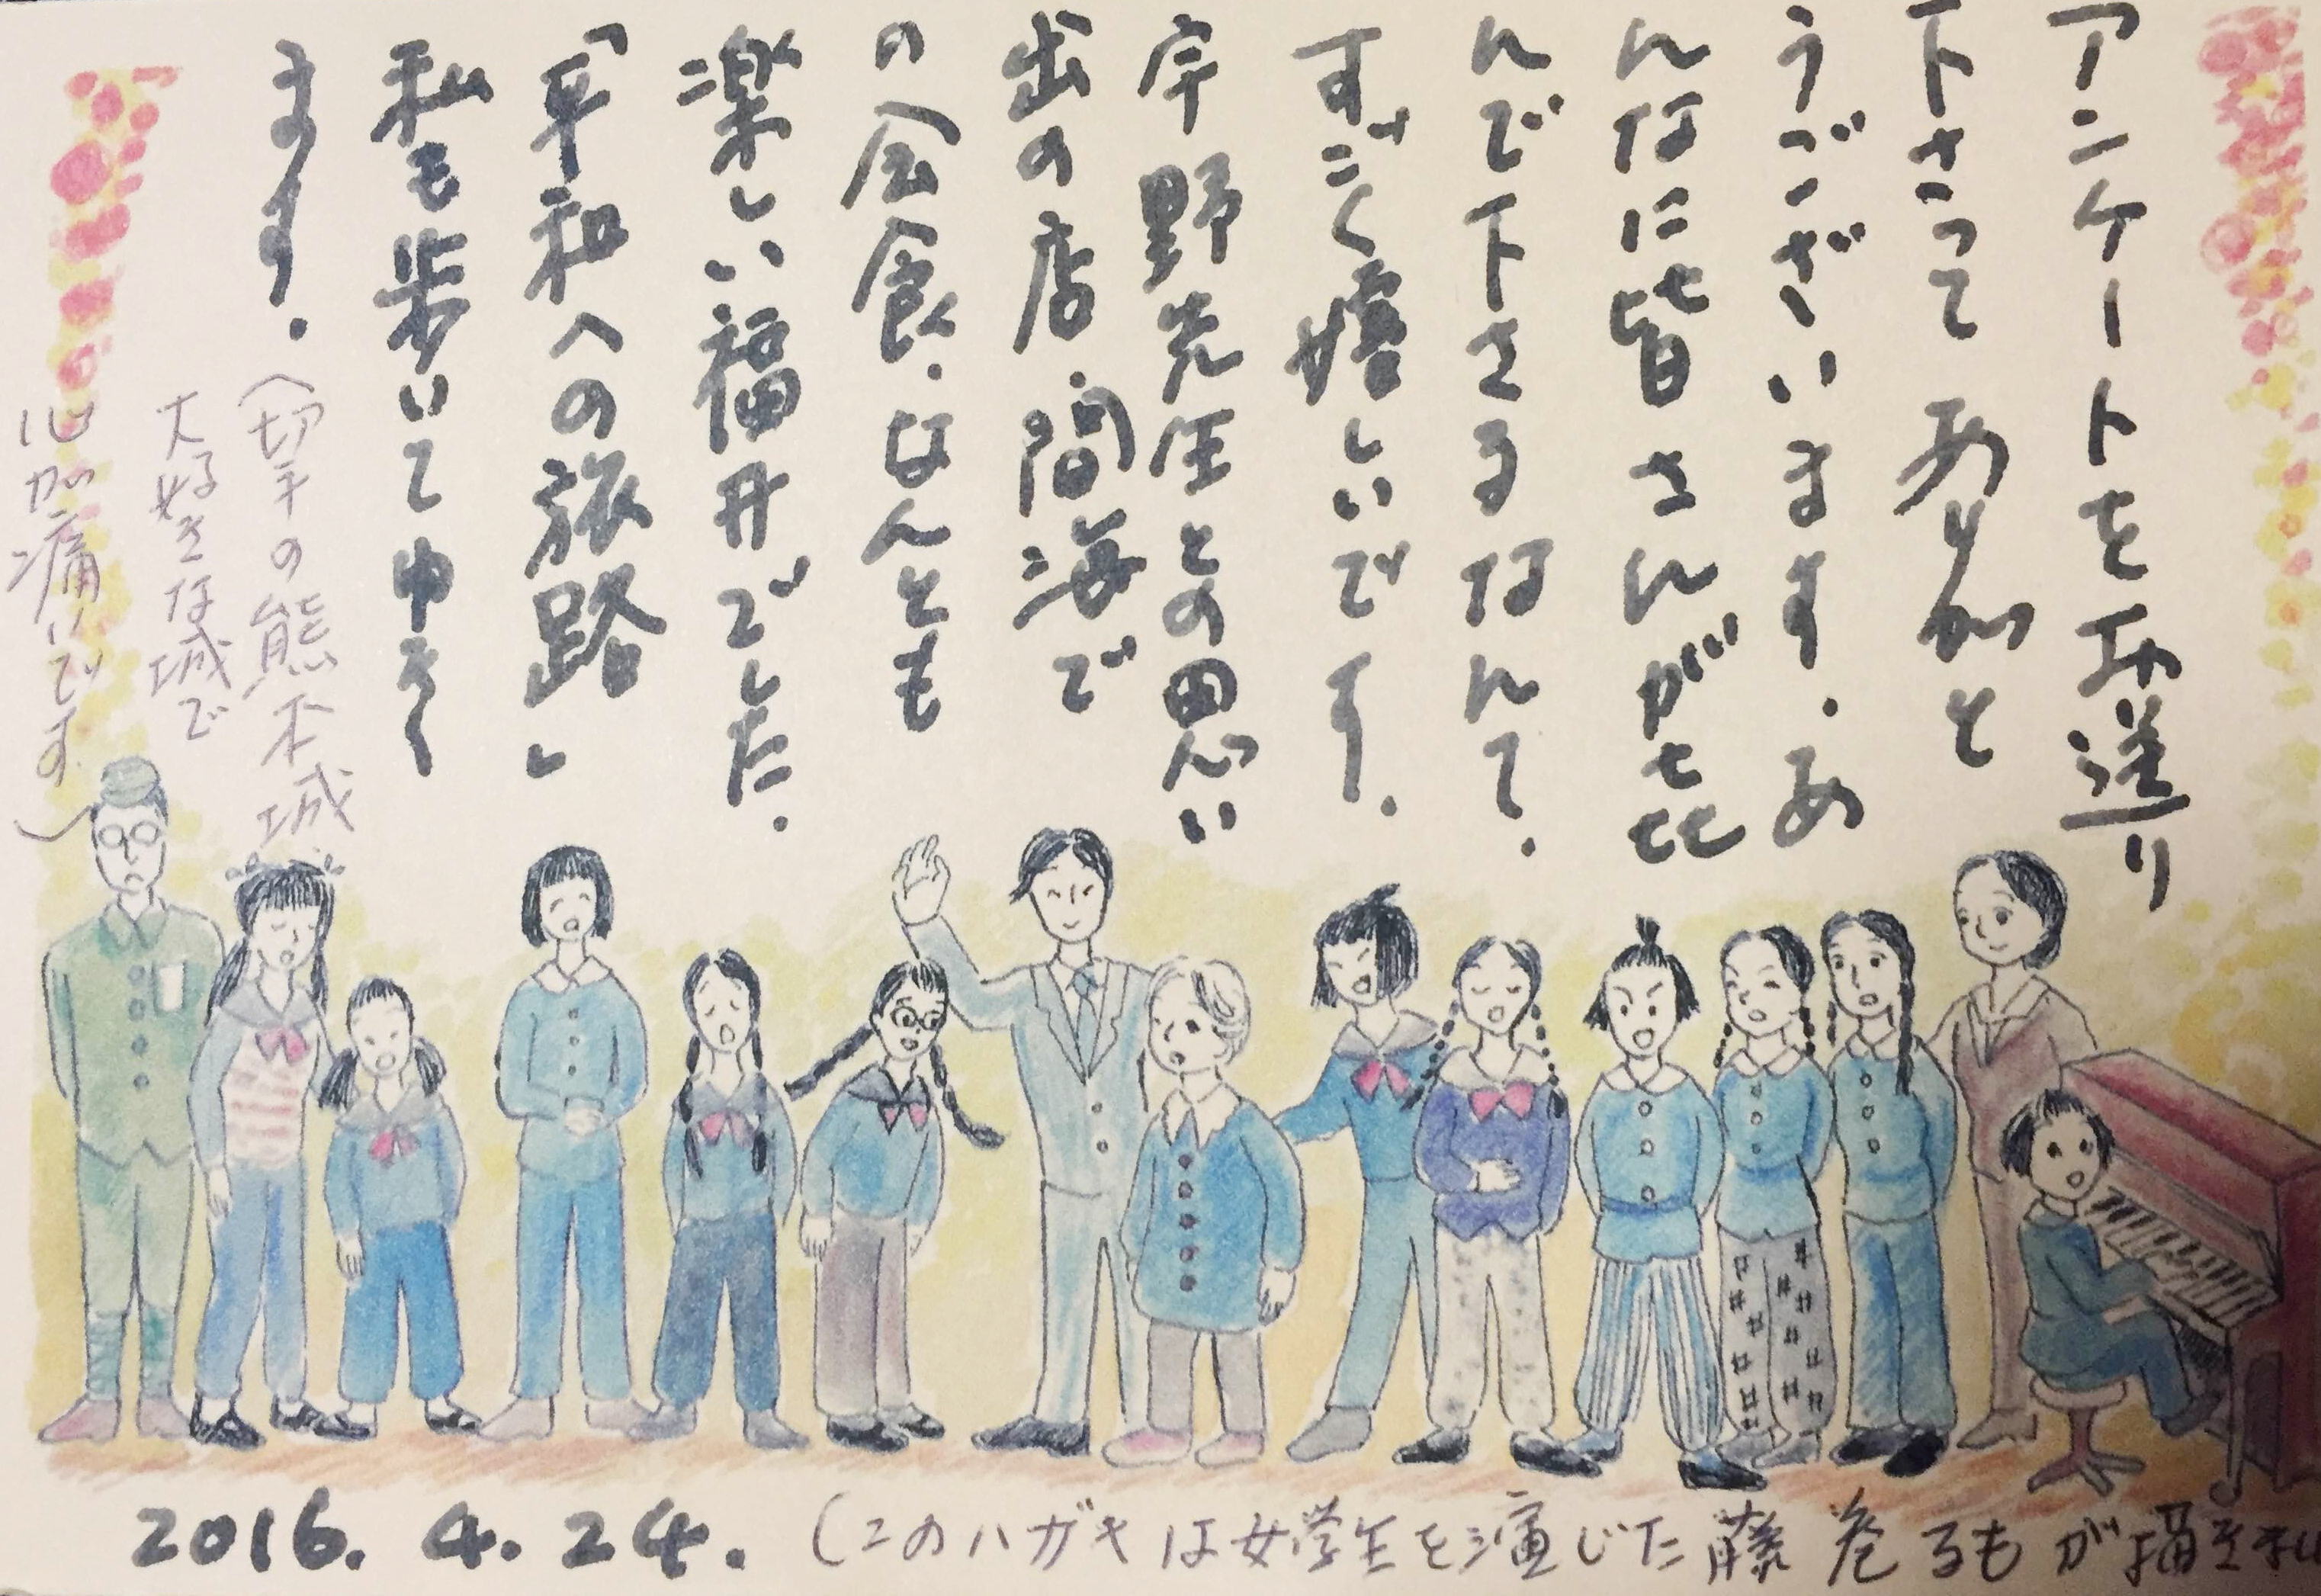 アンケートをお送り
下さって ありがと
うございます．あ
んなに皆さんが喜
んで下さるなんて．
すごく嬉しいです．
宇野先生との思い
出の店．間海で
の会食．なんとも
楽しい福井でした．
「平和への旅路」
私も歩いてゆき
ます．
（切手の熊本城
大好きな城で
心が痛いです
2016. 4. 24.
（このハガキは女学生を演じた藤巻るもが描き